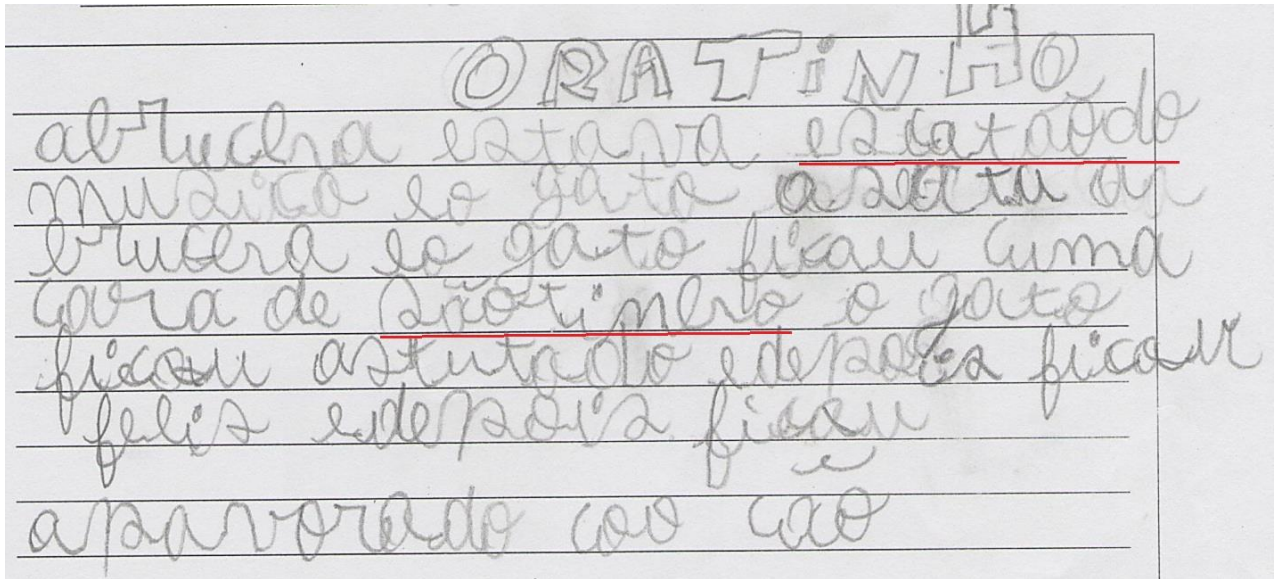 ORATiNHO
abrucha estava escatãodo
musica eo gato asutu ar
brucha eo gato ficau cuma
cara de sãotinho o gato
ficou astutado edepois ficou
felis edepois ficau
apavorado coo cão